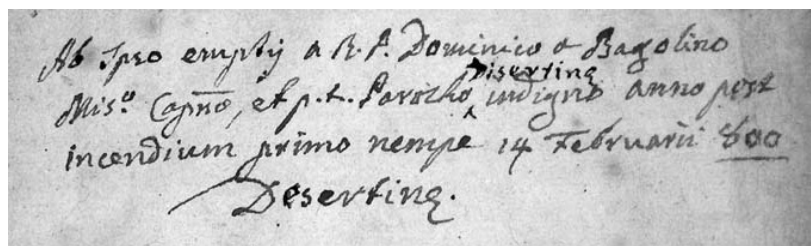 Ab ipso emptij a R. P. Dominico a Bagolino
Miss.o Capno, et p. t. Parocho Disertinę indigno anno post
incendium primo nempe 14 Februarii 800
Desertinę.